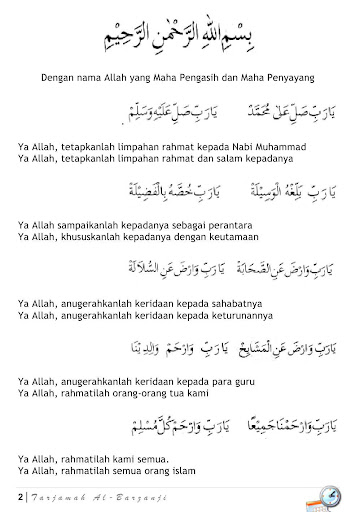 بِسْمِ اللّٰهِ الرَّحْمٰنِ الرَّحِيْمِ
Dengan nama Allah yang Maha Pengasih dan Maha Penyayang
يَارَبِّ صَلِّ عَلٰى مُحَمَّدْ يَارَبِّ صَلِّ عَلَيْهِ وَسَلِّمْ
Ya Allah, tetapkanlah limpahan rahmat kepada Nabi Muhammad
Ya Allah, tetapkanlah limpahan rahmat dan salam kepadanya
يَا رَبِّ بَلِّغْهُ الْوَسِيْلَةْ يَارَبِّ خُصَّهُ بِالْفَضِيْلَةْ
Ya Allah sampaikanlah kepadanya sebagai perantara
Ya Allah, khususkanlah kepadanya dengan keutamaan
يَارَبِّ وَارْضَ عَنِ الصَّحَابَةْ يَارَبِّ وَارْضَ عَنِ السُّلَالَةْ
Ya Allah, anugerahkanlah keridaan kepada sahabatnya
Ya Allah, anugerahkanlah keridaan kepada keturunannya
يَارَبِّ وَارْضَ عَنِ الْمَشَايِخْ يَارَبِّ وَارْحَمْ وَالِدِيْنَا
Ya Allah, anugerahkanlah keridaan kepada para guru
Ya Allah, rahmatilah orang-orang tua kami
يَارَبِّ وَارْحَمْنَا جَمِيْعًا يَارَبِّ وَارْحَمْ كُلَّ مُسْلِمْ
Ya Allah, rahmatilah kami semua.
Ya Allah, rahmatilah semua orang islam
2 | Tarjamah Al-Barzanji